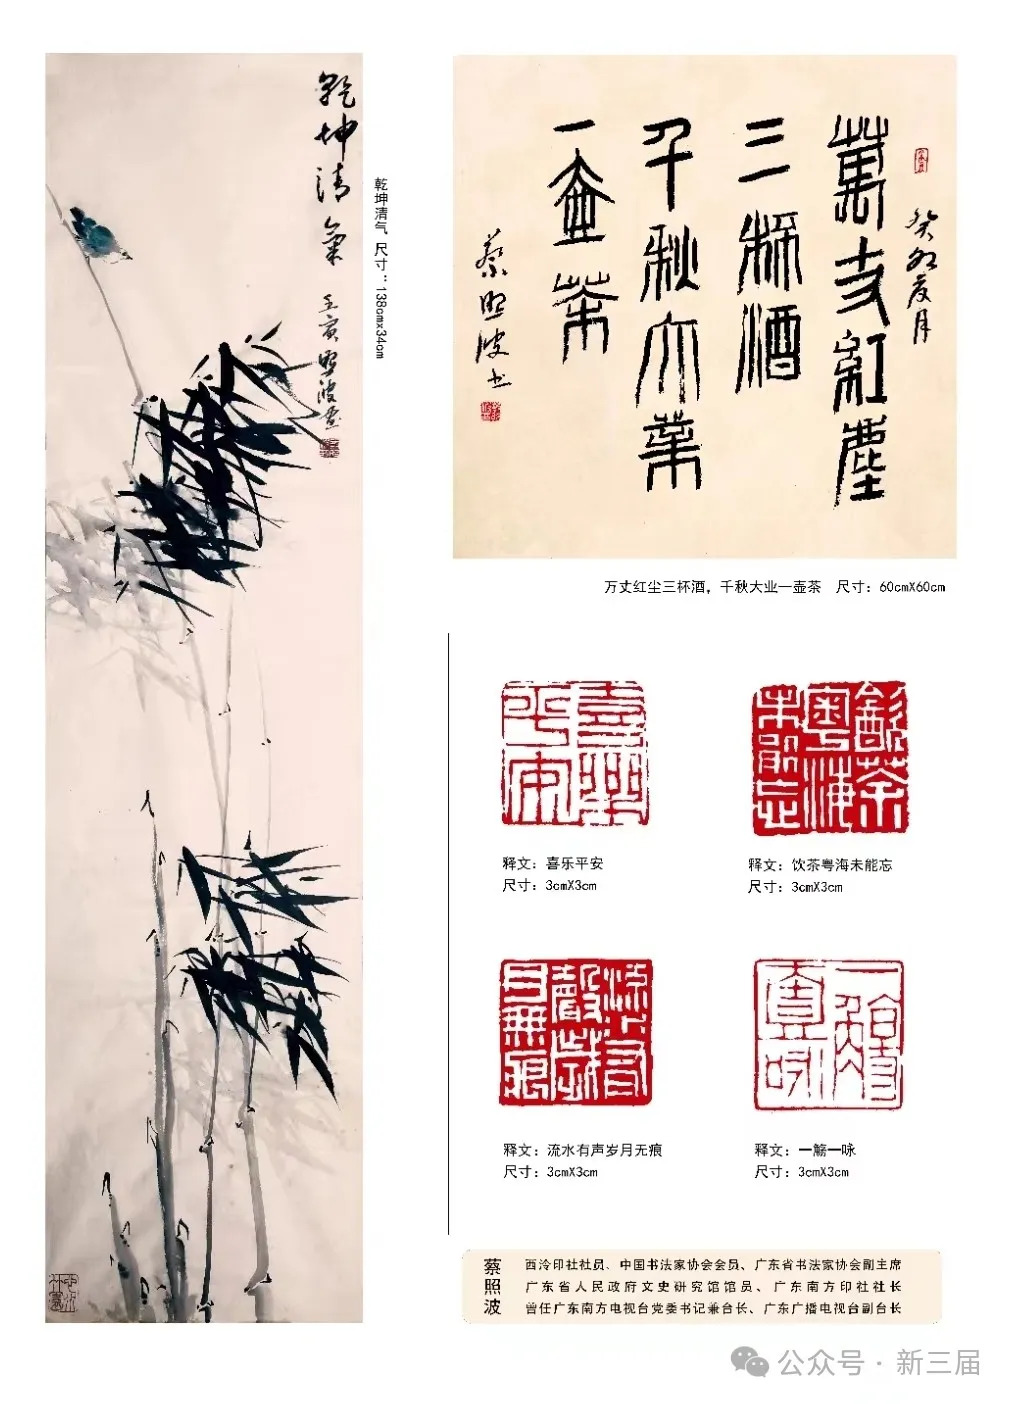 乾坤清氣
壬寅照波画
乾坤清气 尺寸：138cmx34cm
癸卯夏月
萬丈紅塵
三杯酒
千秋大業
一壺茶
蔡照波书
万丈红尘三杯酒，千秋大业一壶茶 尺寸：60cmX60cm
释文：喜乐平安
尺寸：3cmX3cm
释文：饮茶粤海未能忘
尺寸：3cmX3cm
释文：流水有声岁月无痕
尺寸：3cmX3cm
释文：一觞一咏
尺寸：3cmX3cm
蔡照波
西泠印社社员、中国书法家协会会员、广东省书法家协会副主席
广东省人民政府文史研究馆馆员、广东南方印社社长
曾任广东南方电视台党委书记兼台长、广东广播电视台副台长
公众号·新三届